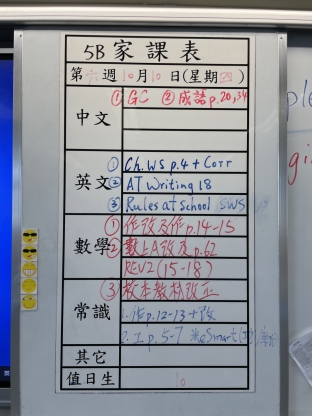 5B 家課表
第六週10月10日(星期四)
中文
① GC ② 成語 p.20,34
英文
① Ch.WS p.4 + Corr
② AT Writing 18
③ Rules at School SWS
數學
① 作改及作 p.14-15
② 數上A改及 p.62
REV2 (15-18)
③ 校本教材改正
常識
1. 作 p.12-13 + 改
2. 工 p.5-7
其它
值日生
10